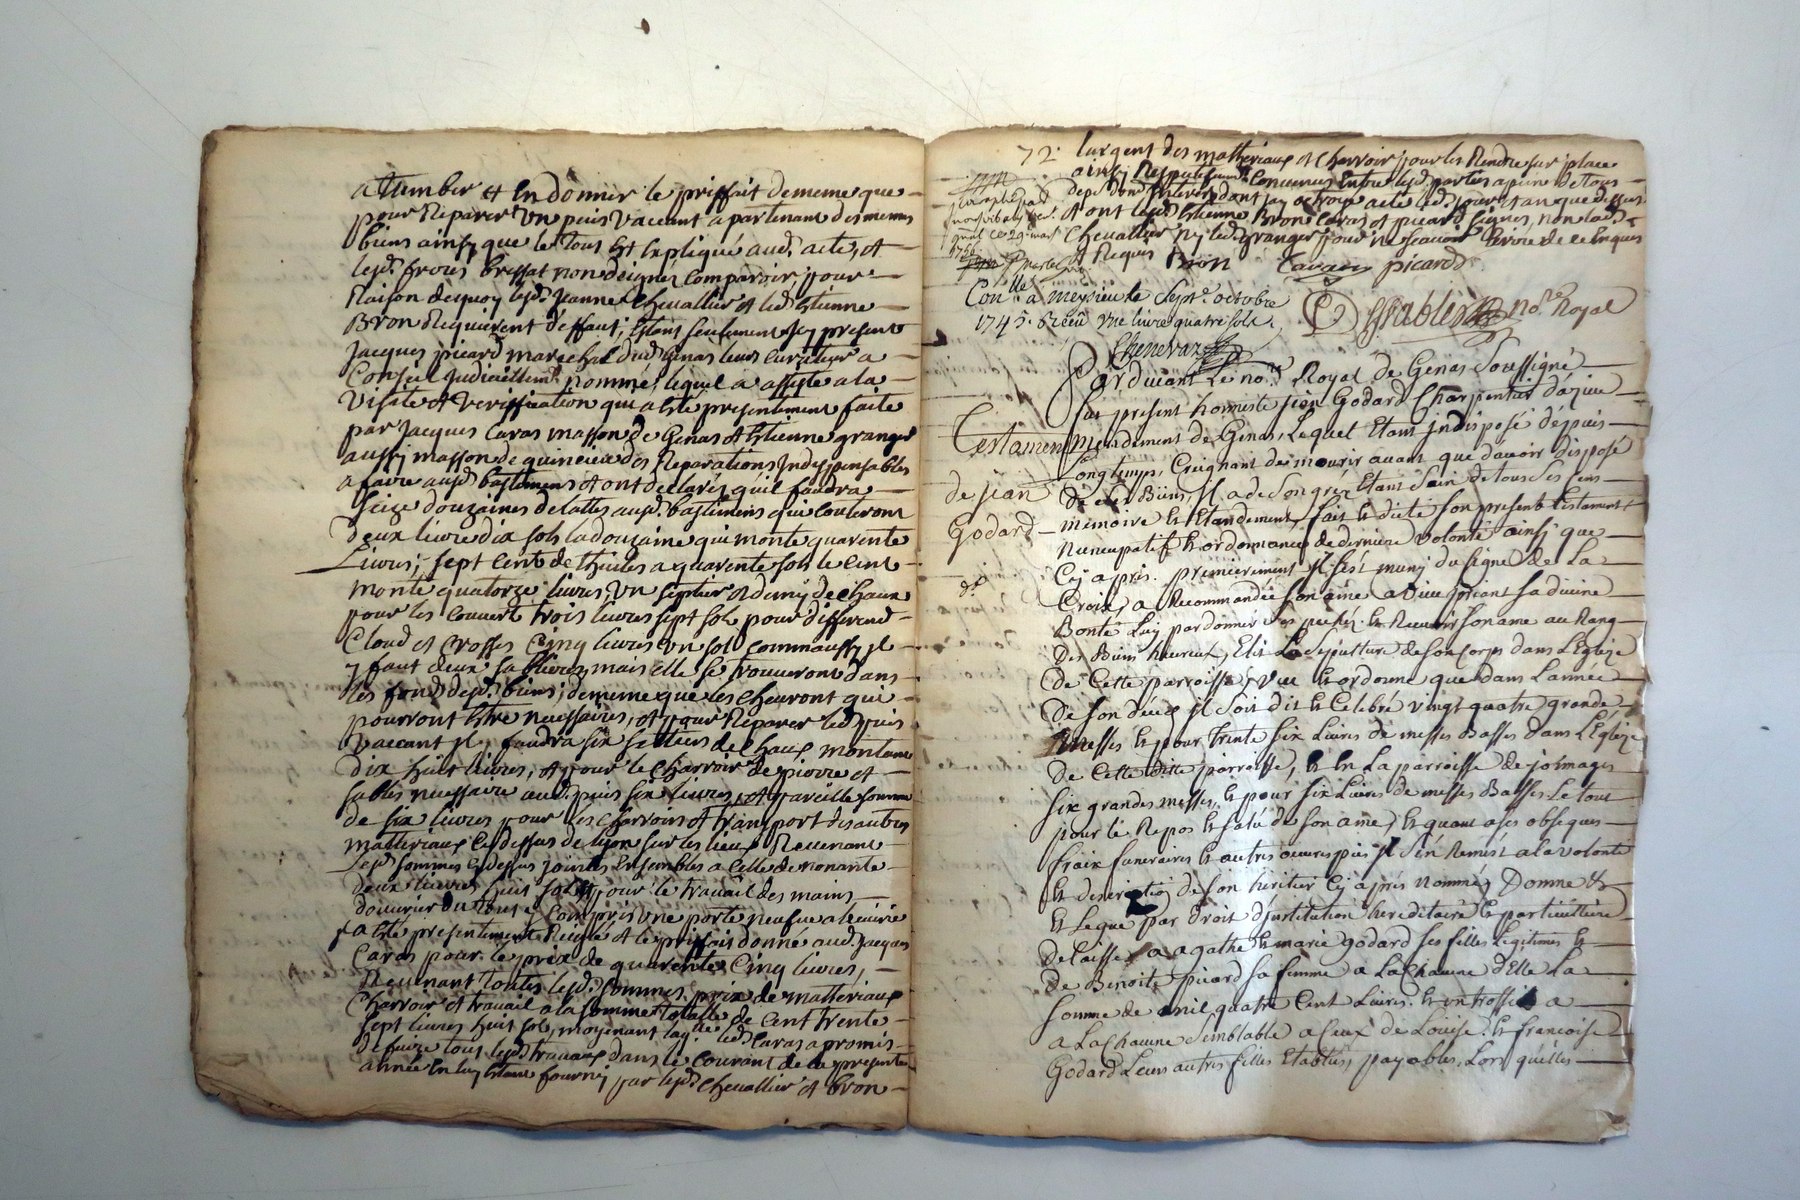 a tember et en donner le prisfait de meme que
pour Reparer un puis vaccant apartenant des memes
biens ainsy que le tous est expliqué aud. acte, et
lesd. freres brissat non deignes comparoir, pour
Raison dequoy lesd. Jeanne Chevallier et led. Etienne
Bron Requierent deffaut, Etans seulement icy present
Jacques picard marechal dud. Genas leurs curateur a
Conseil judiciellemt nommé, lequel a assiste a la
visite et veriffication qui a esté presentement faite
par Jacques Caras masson de Genas et Etienne granger
aussy masson de quincieu des Reparations indispensables
a faire ausd. bastimens et ont declarés quil faudra
seize douzaines de lattes ausd. bastimens qui couteront
deux livre dix sols la douzaine qui monte quarente
Livres, sept cent de thuiles a quarente sols le cent
monte quatorze livres, un septier et demy de chaux
pour les couvert trois livres sept sols pour differend
Cloud et crosses Cinq livres un sol comm aussy il
y faut deux sablieres mais elle se trouveront dans
les fond desd. biens, de meme que les chevront qui
pourront estre necessaires, et pour Reparer led. puis
vaccant il y faudra six settiers de chaux montant
dix huit livres, et pour le charroir de pierre et
sables necessaire aud. puis six livres, et pareille somme
de six livres pour les charroirs et transport des autres
matteriaux cy dessus de lyon sur les lieux Revenant
lesd. sommes cy dessus jointes ensembles a celle de nonante
deux livres huit sols pour le travail des mains
douvrier du tous y compris une porte neufve a lecurie
a este presentement Reiglé et le prisfait donné aud. Jacques
Caras pour le prix de quarente Cinq livres,
Revenant toutes lesd. sommes prix de matteriaux
Charroir et travail a la somme totalle de Cent trente
sept livres huit sols, moyenant laq.lle led. Caras a promis
de faire tous lesd. travaux dans le courant de la presente
année en luy Etant fourny par lesd. Chevallier et bron
72. largent des matheriaux et charroir pour les Rendre sur place
ainsy Respectivemt Convenus entre lesd. parties a peine de tous
depe. dom. interes dont jay octroyé acte lesd. jour et an que dessus
et ont lesd. Etienne Bron Caras et picard signés, non lad.
Chevallier ny led. granger pour ne scavoir Ecrire de ce enquis
et Requis Bron Caras picard
Con.lle a Meysieu le Sept.e octobre
1745. Receu une livre quatre sols
Chenevaz
Chablis no.re Royal
Pardevant Le no.re Royal de Genas Soussigné
fut present honneste jean Godard Charpentier d'azieu
Testament
de jean
Godard
mendement de Genas, Lequel Etans indisposé depuis
Longtemps, Craignant de mourir avant que davoir disposé
de ses Biens, jl a de Son gréz Etans Sain de tous Ses sens
memoire et Entendement, fait et dicté son present testament
Nuncupatif et ordonnance de derniere volonté ainsy que
Cy apres. premierement jl s'est muny du Signe de La
Croix, a Recommandée son ame a Dieu priant sa divine
Bonté Luy pardonner ses pechéz et Recevoir son ame au Rang
Des Biens heureux, Elit La Sepulture de son Corps dans L'Eglize
de Cette parroisse, veu et ordonne que dans L'année
de son decex jl Soit dit et Celebré vingt quatre grande
Messes et pour trente six Livres de messes Basses dans L'Eglize
de Cette ditte parroisse, et en La parroisse de jonnages
six grandes messes, et pour six Livres de messes Basses Le tout
pour le Repos et salu de son ame, et quant a ses obseques
fraix funeraires et autres œuvres pies jl s'en Remest a la volonté
et discretion de son heritier Cy après nommé, Donne et
et Legue par droit d'institution hereditaire et particulliere
delaisse a agathe et marie godard ses filles Legitimes et
de Benoite picard sa femme a La Chacune d'Elle La
somme de mil quatre Cent Livres. et un trossel a
a La Chacune semblable a Ceux de Louise. et francoise
Godard Leurs autres filles Etablies, payables, Lors qu'elles